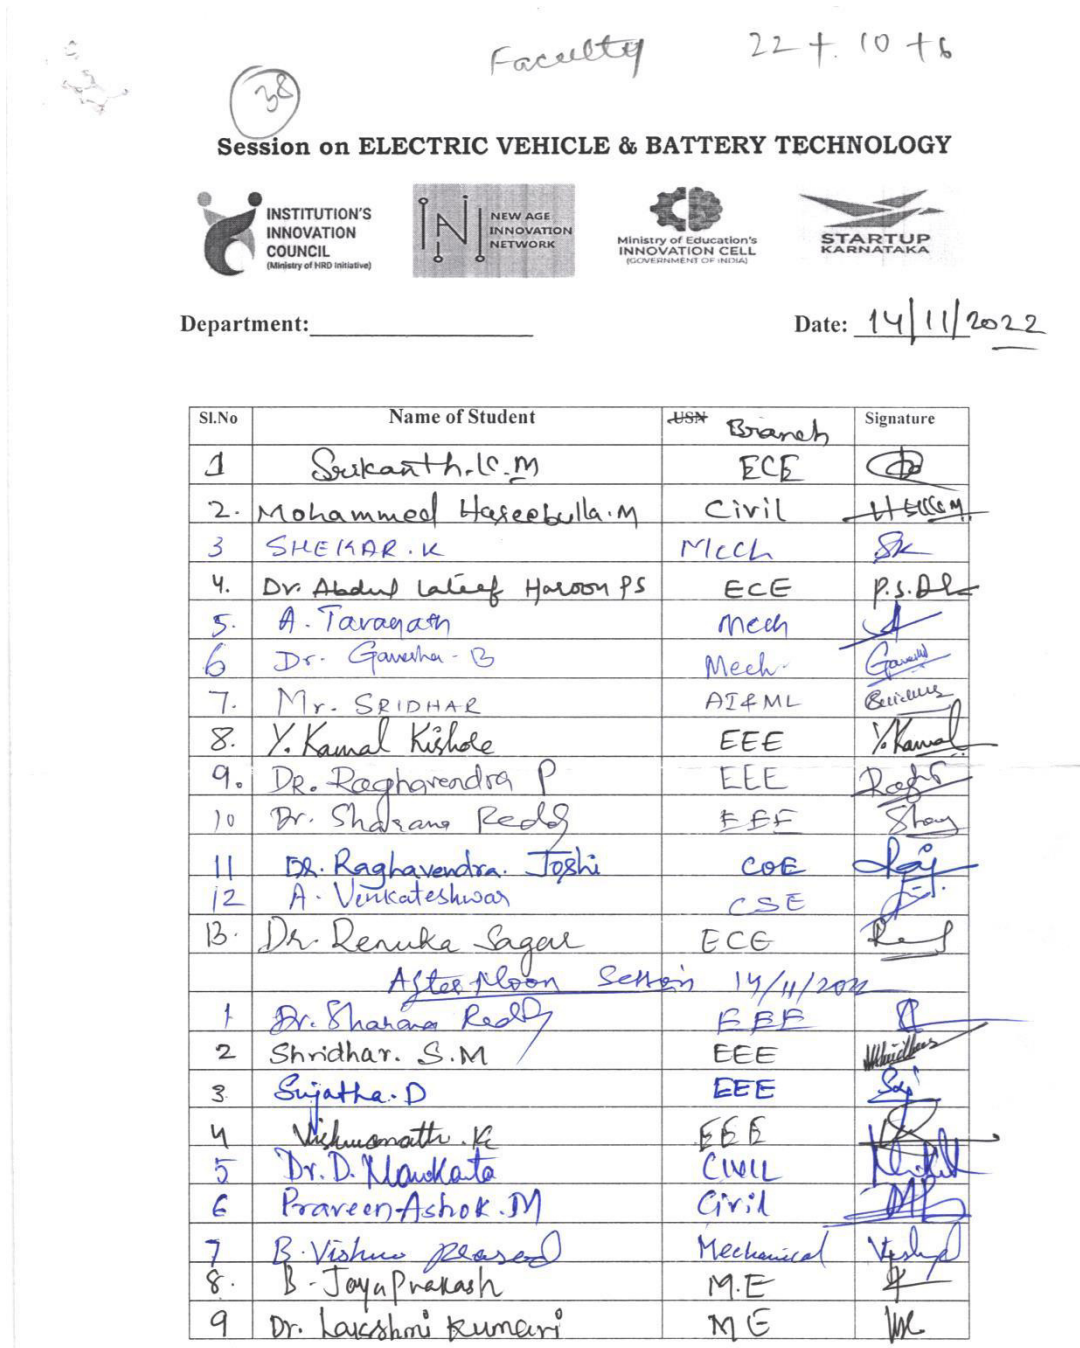 Faculty 22 + 10 + 6
38
Session on ELECTRIC VEHICLE & BATTERY TECHNOLOGY
INSTITUTION'S INNOVATION COUNCIL (Ministry of HRD Initiative)
NEW AGE INNOVATION NETWORK
Ministry of Education's INNOVATION CELL (GOVERNMENT OF INDIA)
STARTUP KARNATAKA
Department: Date: 14/11/2022
Sl.No Name of Student USN Branch Signature
1 Srikanth.K.M ECE
2. Mohammed Haseebulla.M Civil
3 SHEKAR.K Mech SK
4. Dr. Abdul Lateef Haroon PS ECE
5. A. Taranath Mech
6 Dr. Ganesha - B Mech.
7. Mr. SRIDHAR AI&ML
8. Y. Kamal Kishore EEE Y. Kamal
9. DR. Raghavendra P EEE
10 Dr. Sharana Reddy EEE
11 DR. Raghavendra. Joshi COE
12 A. Venkateshwar CSE
13. Dr. Renuka Sagar ECE
After Noon Session 14/11/2022
1 Dr. Sharana Reddy EEE
2 Shridhar. S.M EEE
3. Sujatha.D EEE
4 Vishwanath.K EEE
5 Dr. D. CIVIL
6 Praveen Ashok.M Civil
7 B. Vishnu Prasad Mechanical
8. B. Jaya Prakash M.E
9 Dr. Lakshmi Kumari ME